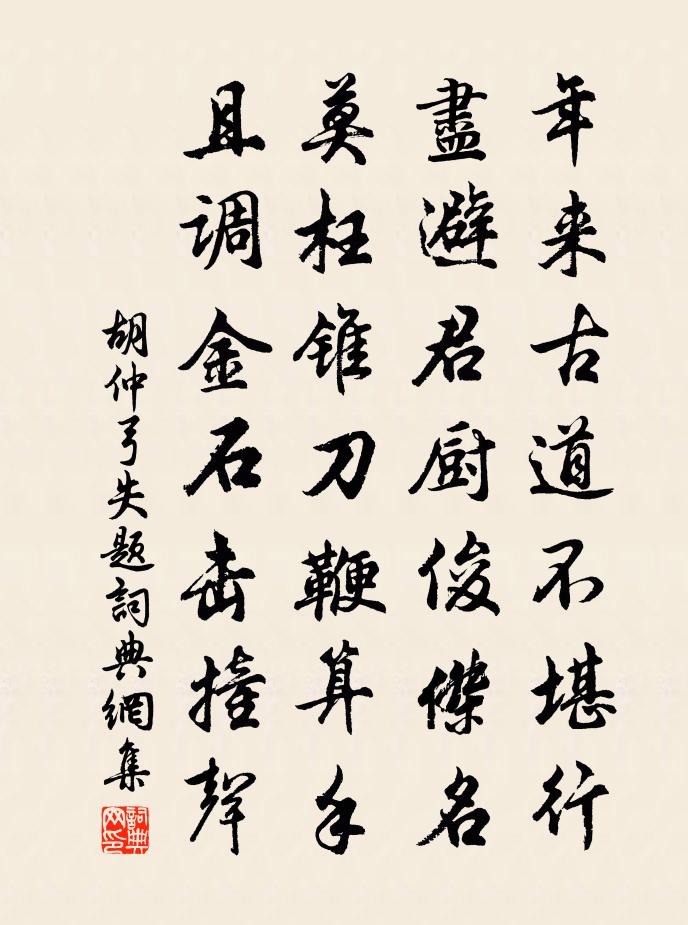 年来古道不堪行
盡避君厨俊傑名
莫枉锥刀鞭算手
且调金石击撞聲
胡仲弓失题詞典網集
詞典网印